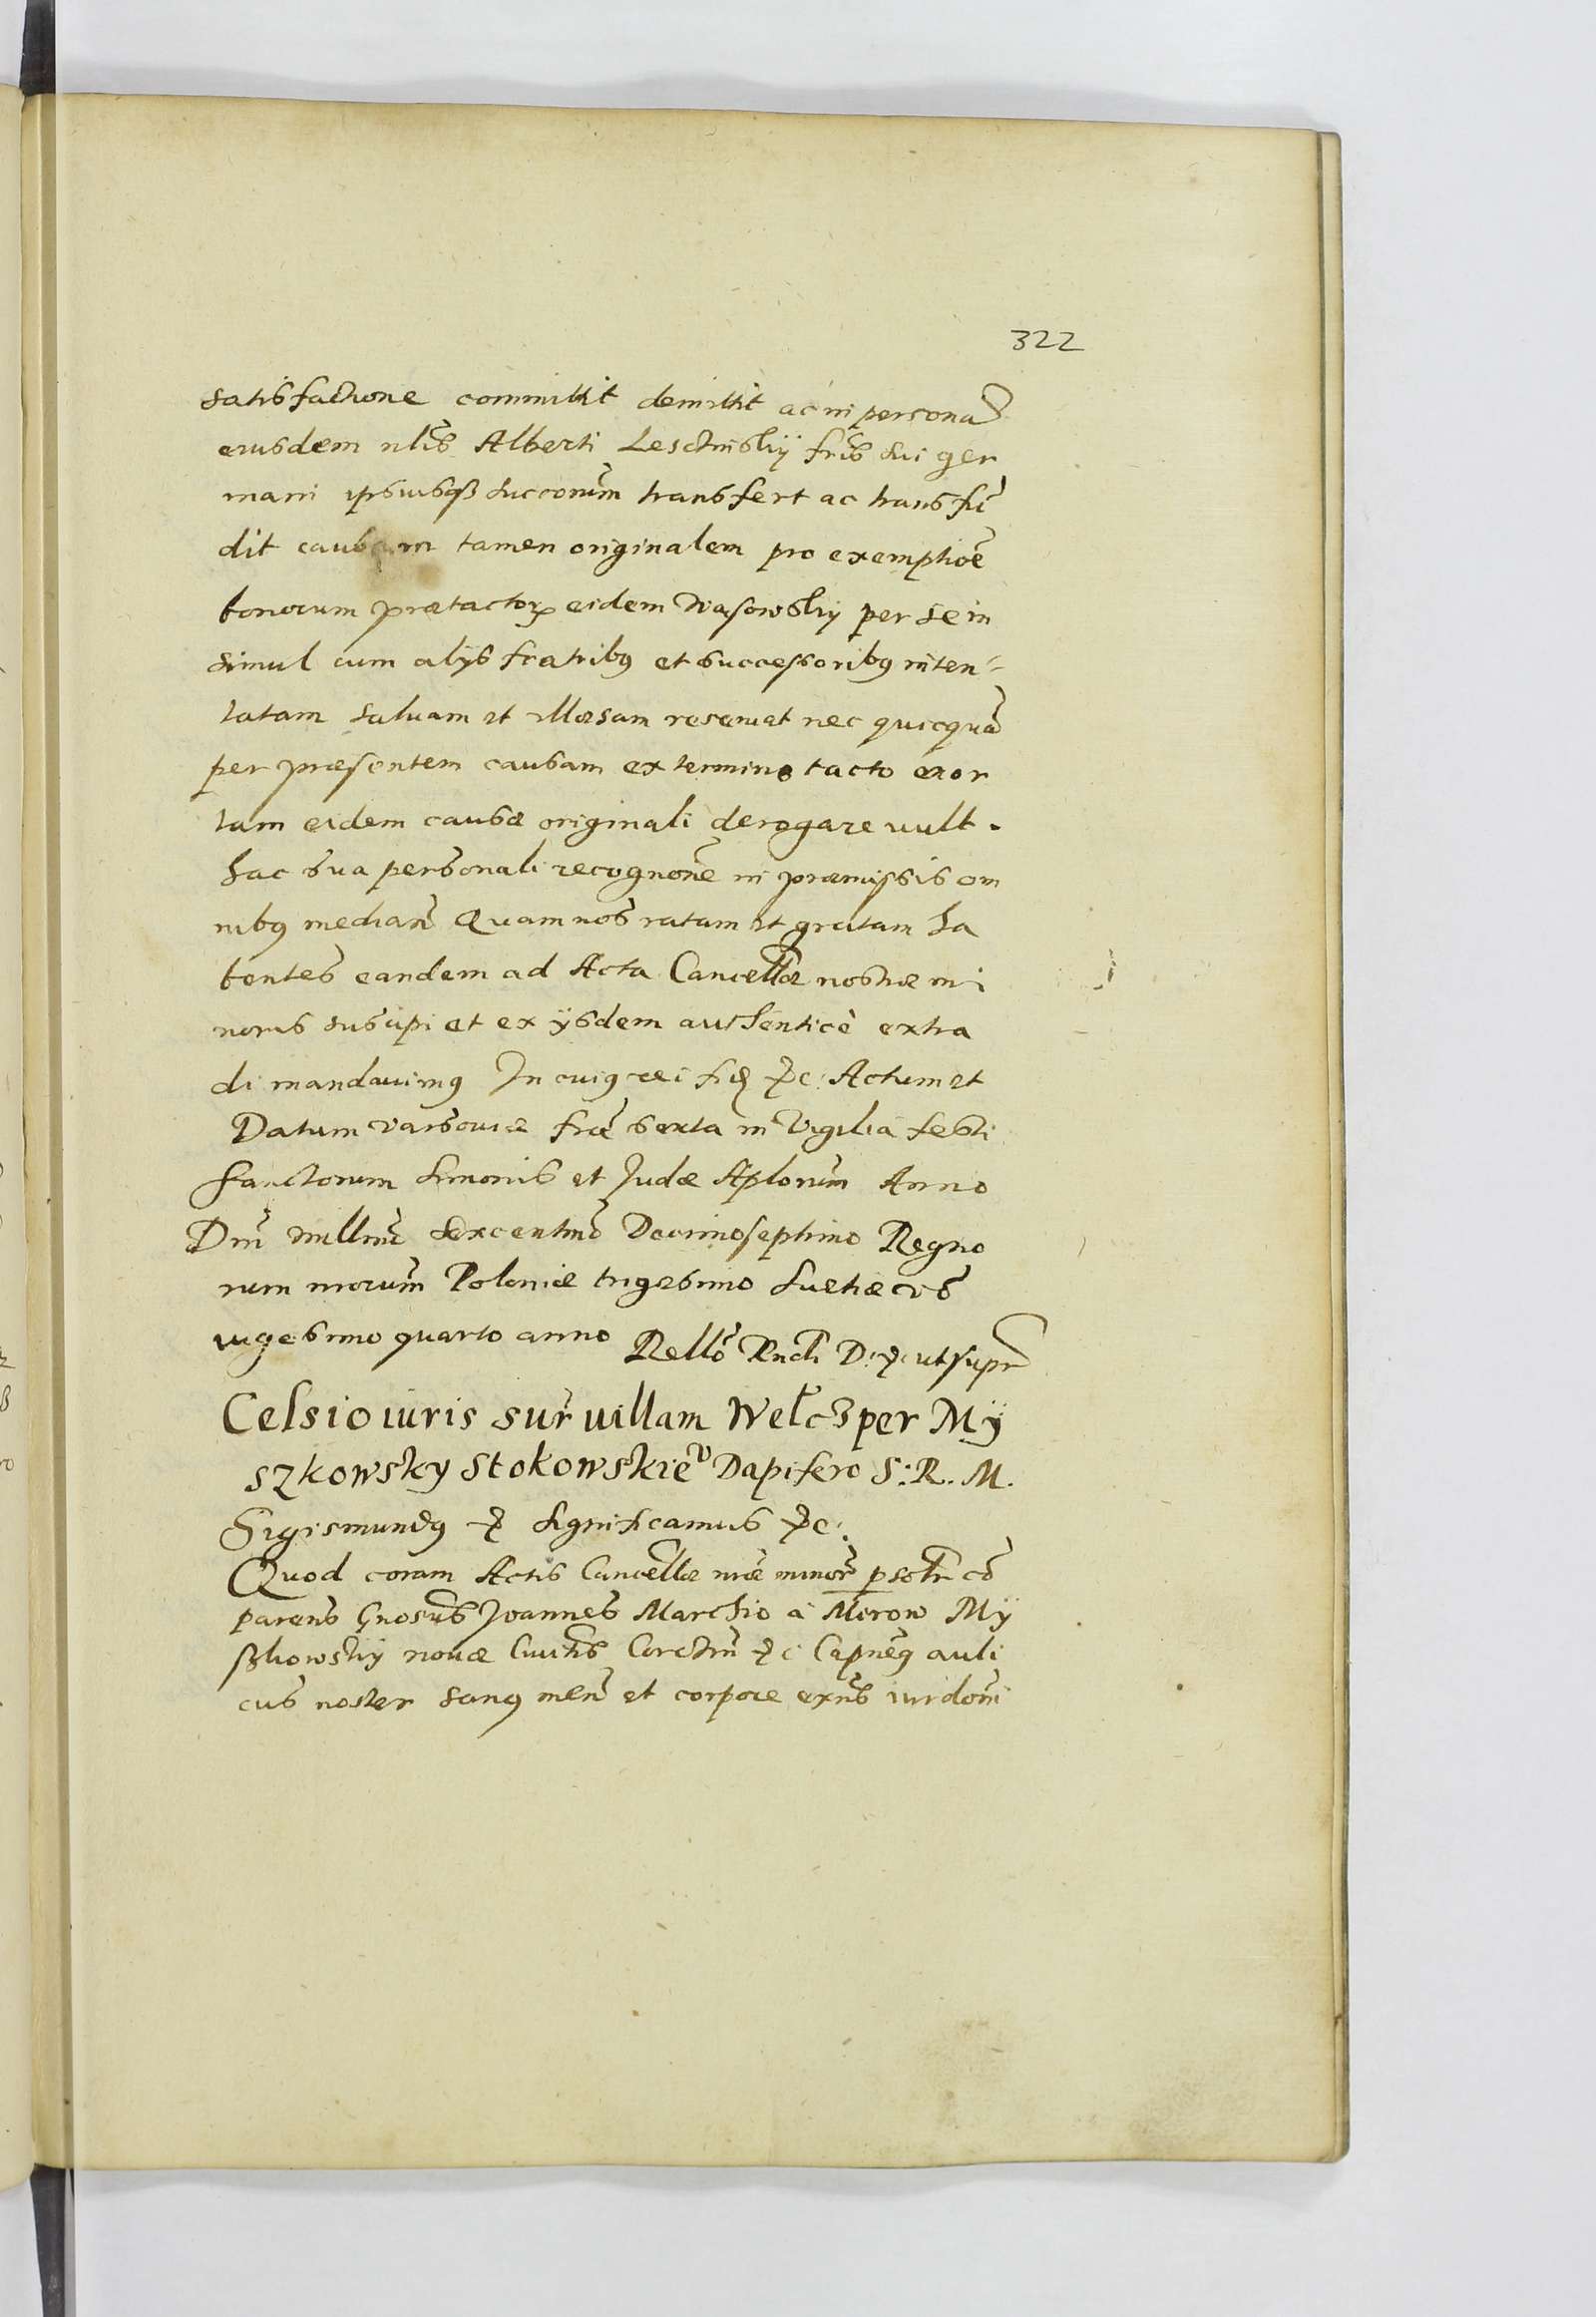 322
satisfactione committit demittit ac in persona
eiusdem nlis Alberti Lesctinskij fris sui ger
mani ipsiusq3 succorum transfert ac transfu
dit causam tamen originalem pro exemptioe
bonorum praetactor eidem Wasowskij per se in
simul cum alijs fratribq et successoribq inten-
tatam saluam et illaesam reseruat nec quicqua
per praesentem causam ex termino tacto exor
tam eidem causae originali derogare uult.
hac sua personali recognone in praemissis om
nibq median Quam nos ratam et gratam ha
bentes eandem ad Acta Cancellae nostrae mi
noris suscipi et ex ijsdem authenticè extra
di mandauimq In cuiq rei fid &c: Actum et
Datum Varsouiae fria sexta in Vigilia festi
Sanctorum Simonis et Judae Aplorum Anno
Dni millmo sexcentmo Decimoseptimo Regno
rum nrorum Poloniae trigesimo Suetiae vo
uigesimo quarto anno Rello Rndi D: & ut supr
Celsio iuris supr uillam Welcz per My
szkowsky Stokowskie Dapifero S: R. M.
Sigismundq & significamus &c:
Quod coram Actis Cancellae nrae minor psolr co
parens Gnosus Joannes Marchio à Mirow My
szkowskij nouae Ciuitis Corctin &c Capneq auli
cus noster sanq men et corpore exns iurdoni